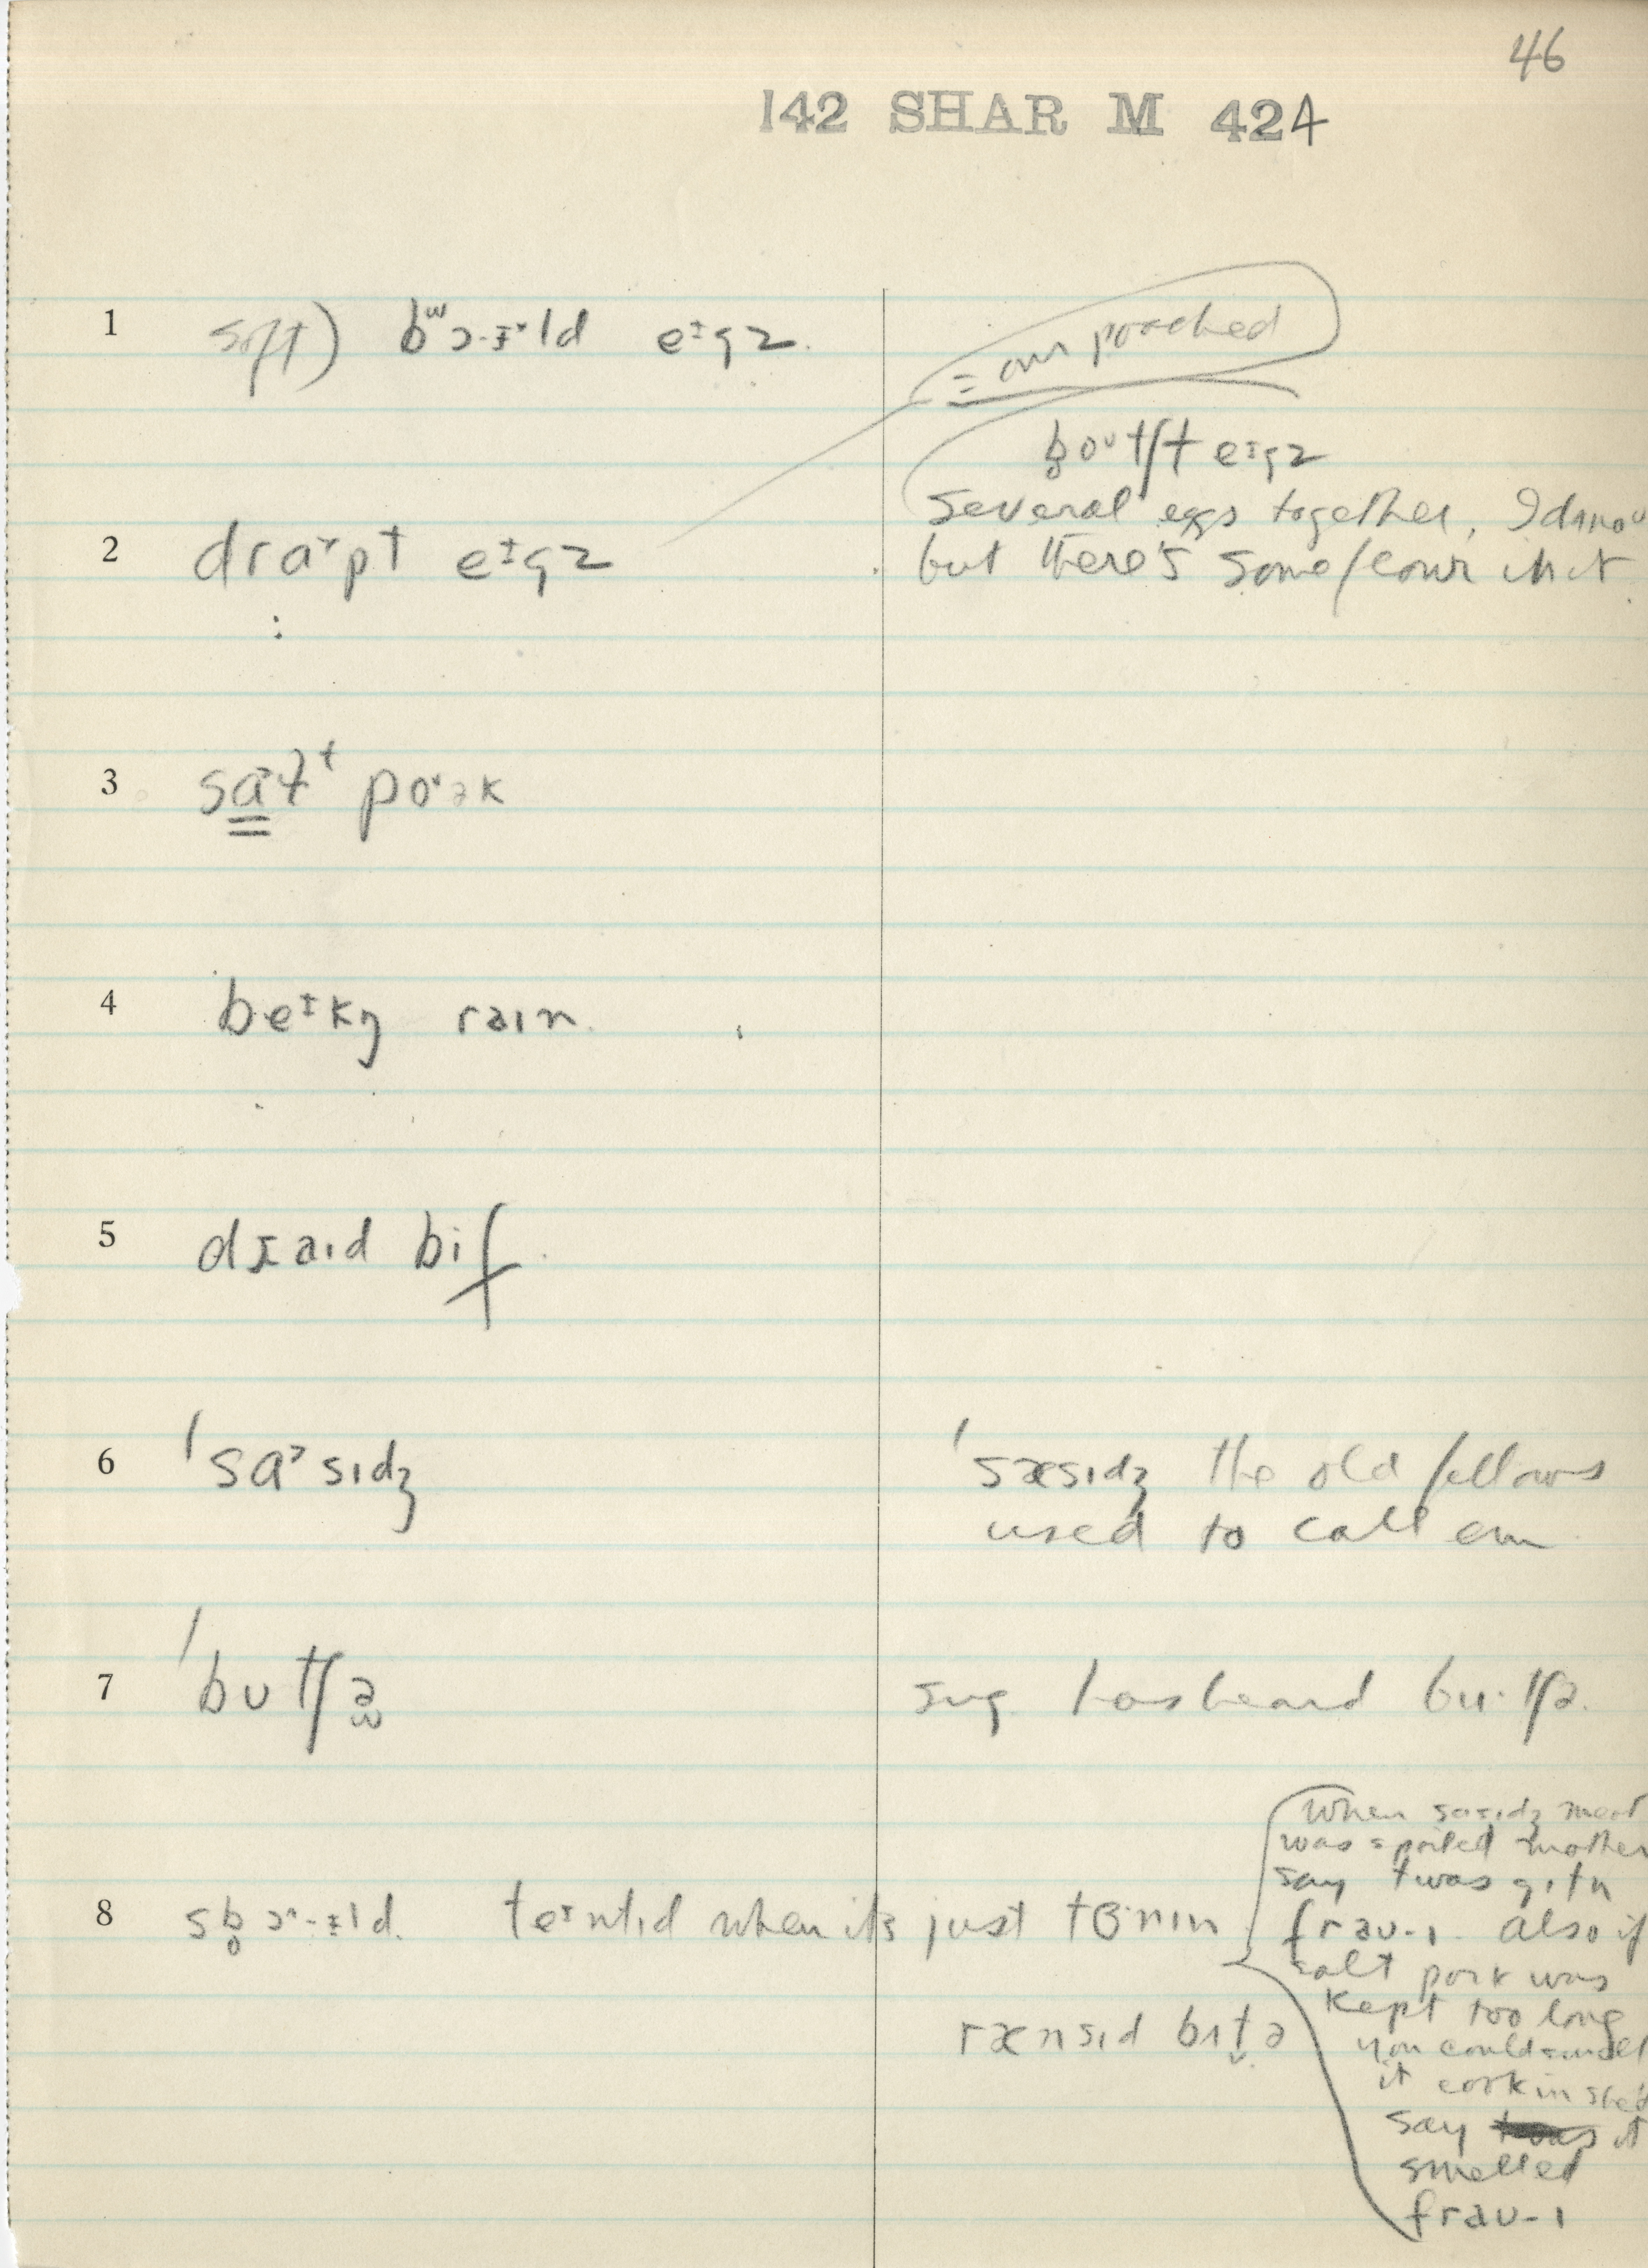 46
142 SHAR M 424
1 soft) bʷɔ·ɪ˅ld eᶦgz.
= our poached
b̥oᵘtʃt eᶦgz
2 drɑ˅pt eᶦgz
several eggs together, I dʌnoᵘ
but there's some flour in it
3 sɑ˃ɫᵗ poˑək
4 beᶦkŋ raɪn
5 dɹaɪd bif
6 ˈsɑ˃sɪdʒ
ˈsæsɪdʒ the old fellows
used to call em
7 ˈbʊtʃə
sug. has heard bu·tʃə.
8 sb̥ɔ^·ɪld. teᶦntɪd when it's just tɜ·nɪn
rænsɪd bʌt̬ə
When sɑsɪdʒ meat
was spoiled mother
say twas gɪtn
fraʊ-ɪ. also if
salt pork was
kept too long
you could smell
it cookin she'd
say it
smelled
fraʊ-ɪ